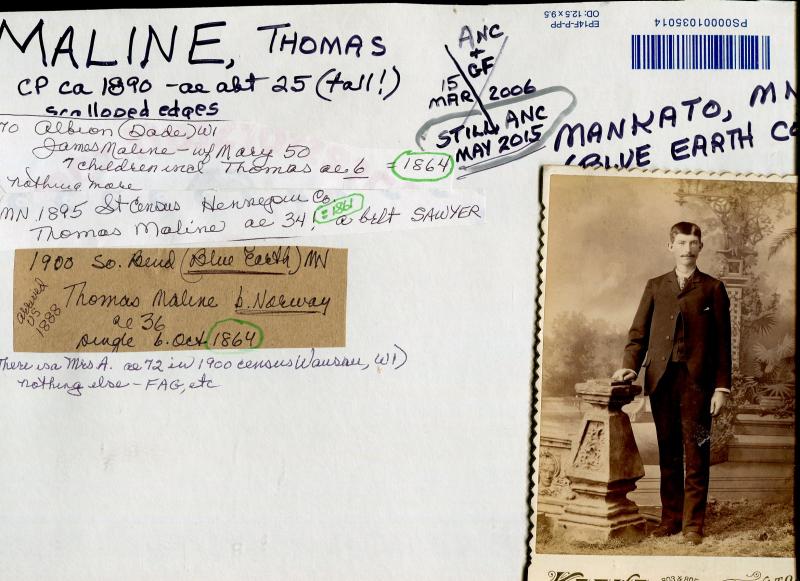 MALINE, THOMAS
CP ca 1890 - ae abt 25 (tall!)
scalloped edges
ANC
+
GF
15
MAR 2006
STILL ANC
MAY 2015
EP14F-P-PP
OD: 12.5 x 9.5
PS00001035014
MANKATO, MN
(BLUE EARTH CO
70 Albion (Dade) WI
James Maline - wf Mary 50
7 children incl Thomas ae 6 = 1864
nothing more
MN 1895 St Census Hennepin Co.
= 1861
Thomas Maline ae 34! a belt SAWYER
1900 So. Bend (Blue Earth) MN
Thomas Maline b. Norway
arrived
US
1888
ae 36
Single b. Oct 1864
There is a Mrs A. ae 72 in 1900 census Wausau, WI)
nothing else - FAG, etc